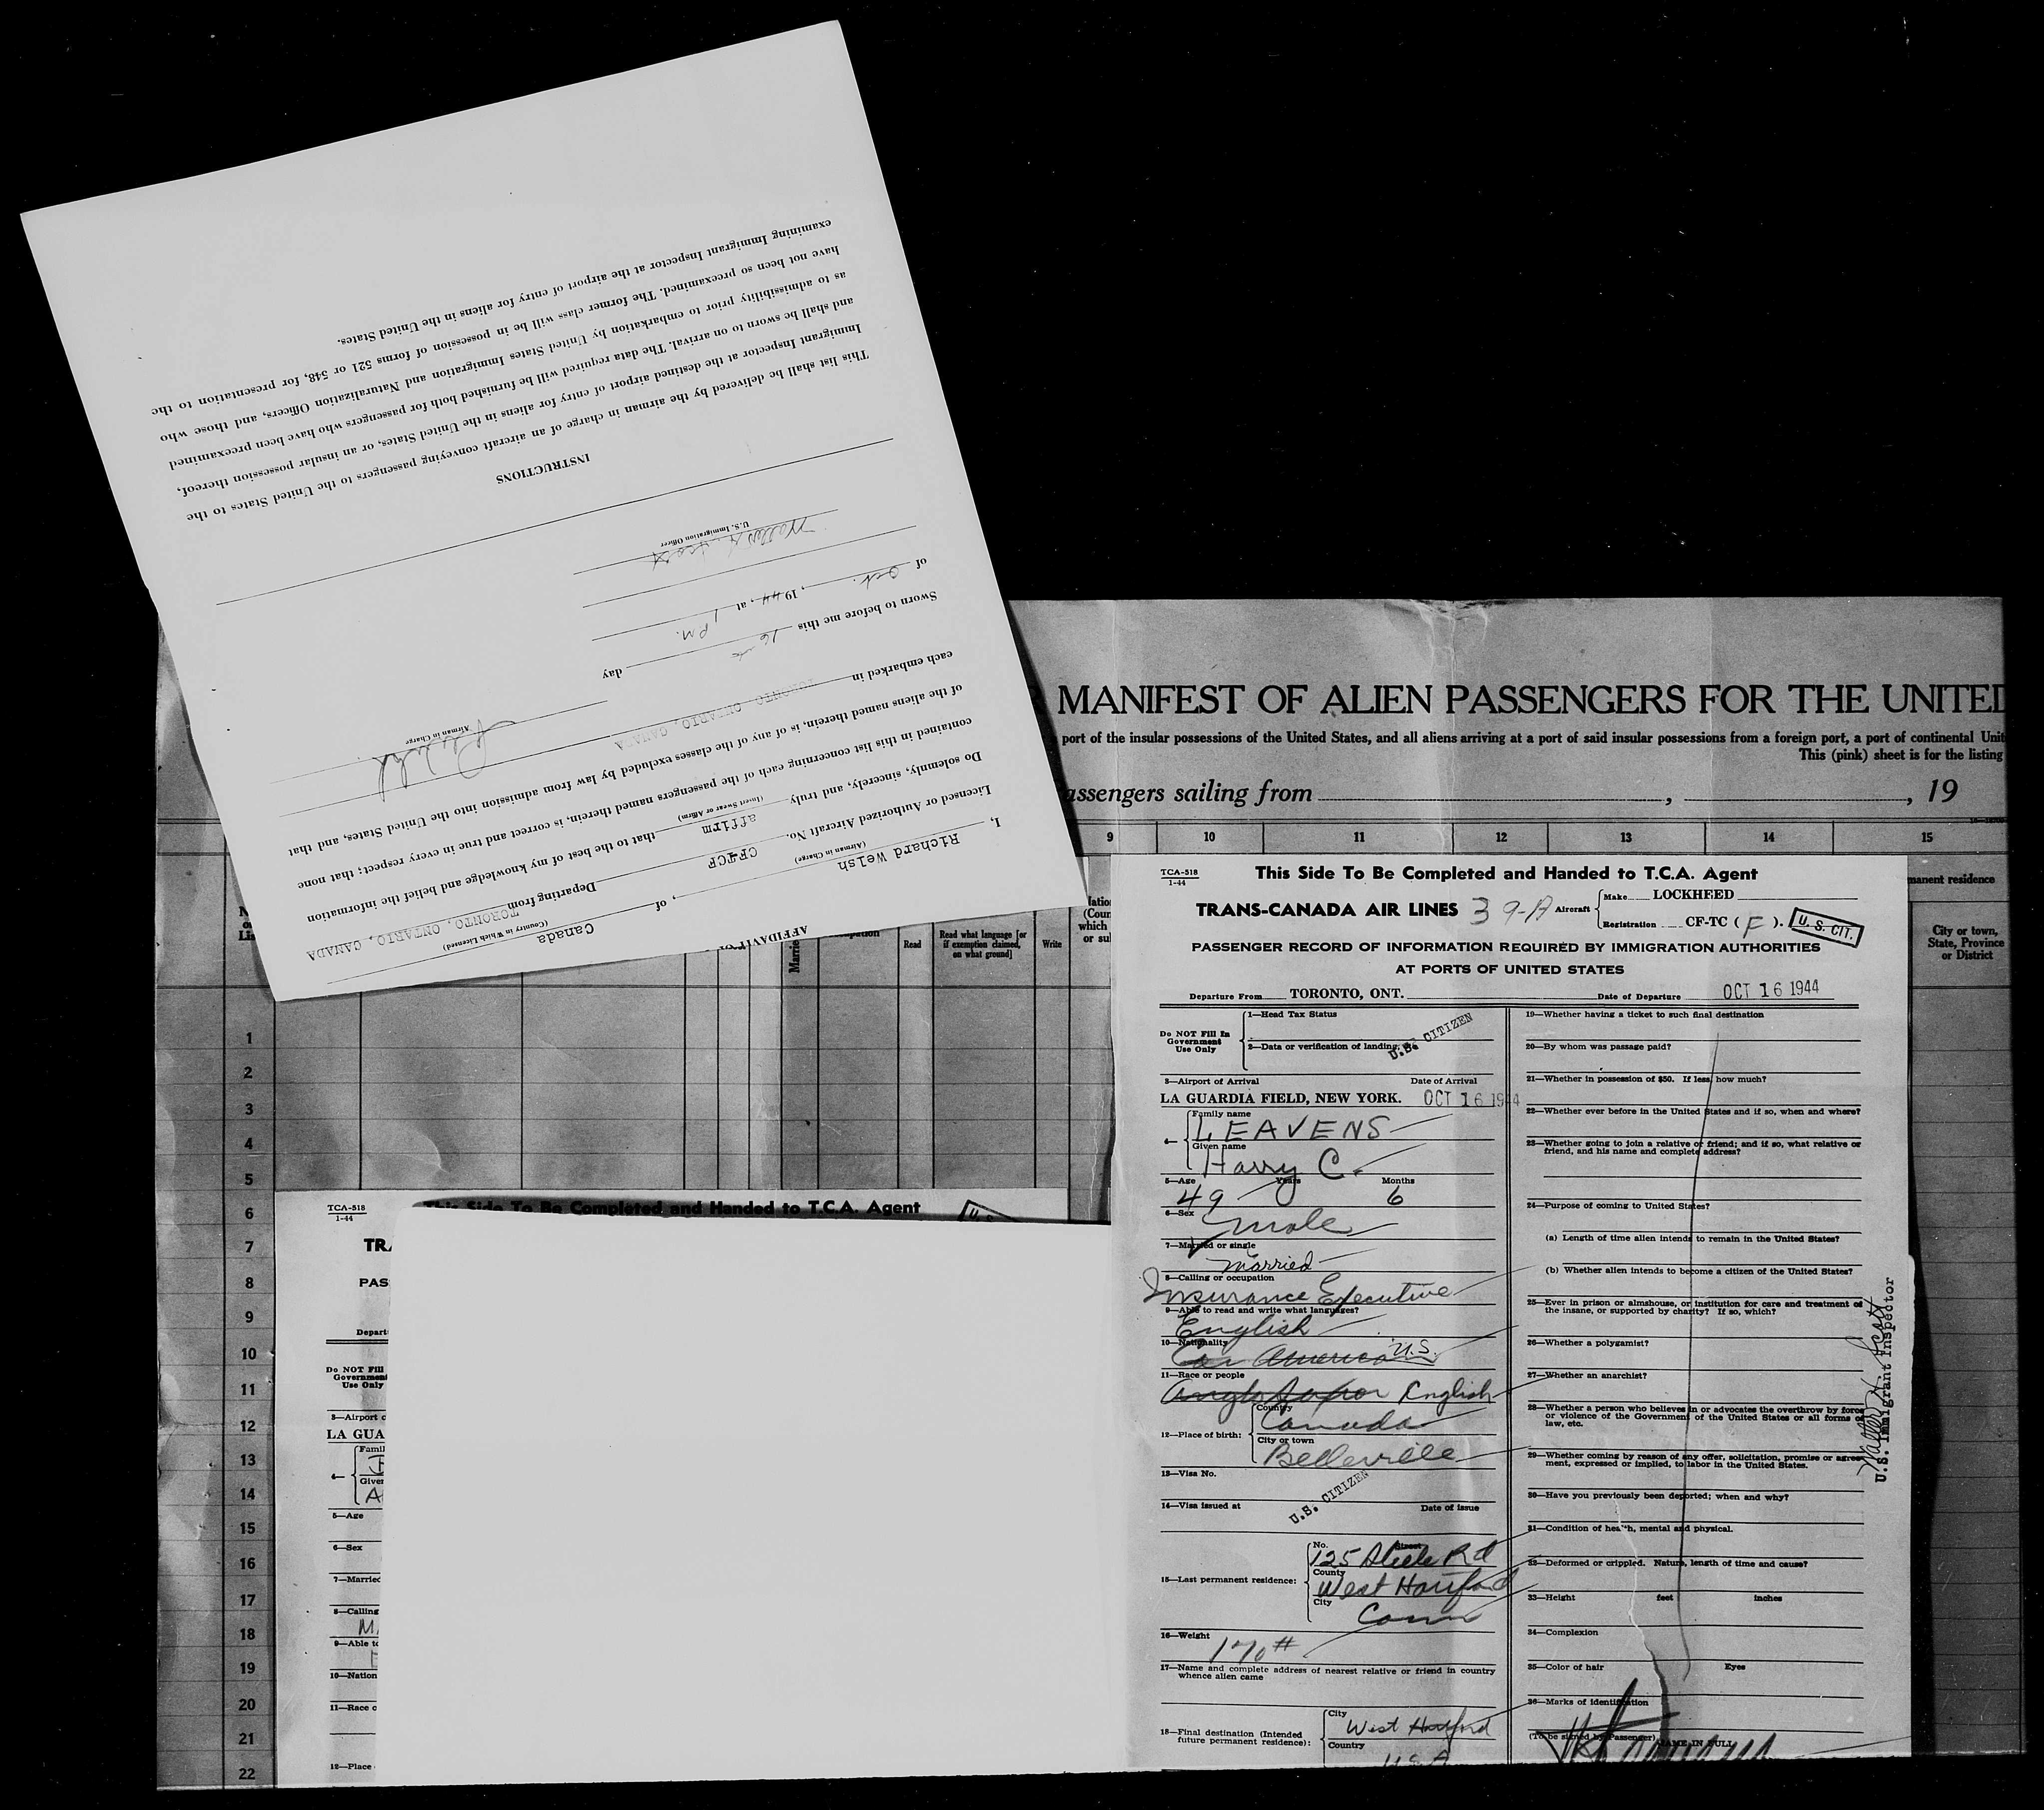 AFFIDAVIT OF
I, Richard Welsh, of Canada
(Airman in Charge) (Country in Which Licensed)
Licensed or Authorized Aircraft No. CFTCF Departing from TORONTO, ONTARIO, CANADA
Do solemnly, sincerely, and truly affirm that to the best of my knowledge and belief the information
(Insert Swear or Affirm)
contained in this list concerning each of the passengers named therein, is correct and true in every respect; that none
of the aliens named therein, is of any of the classes excluded by law from admission into the United States, and that
each embarked in TORONTO, ONTARIO, CANADA
Airman in Charge
Sworn to before me this 16 day
of Oct., 1944, at 1 P.M.
U.S. Immigration Officer
INSTRUCTIONS
This list shall be delivered by the airman in charge of an aircraft conveying passengers to the United States to the
Immigrant Inspector at the destined airport of entry for aliens in the United States, or an insular possession thereof,
and shall be sworn to on arrival. The data required will be furnished both for passengers who have been preexamined
as to admissibility prior to embarkation by United States Immigration and Naturalization Officers, and those who
have not been so preexamined. The former class will be in possession of forms 521 or 548, for presentation to the
examining Immigrant Inspector at the airport of entry for aliens in the United States.
MANIFEST OF ALIEN PASSENGERS FOR THE UNITED
port of the insular possessions of the United States, and all aliens arriving at a port of said insular possessions from a foreign port, a port of continental Unit
This (pink) sheet is for the listing
assengers sailing from , , 19
9 10 11 12 13 14 15
manent residence
Read
Read what language [or
if exemption claimed,
on what ground]
Write
City or town,
State, Province
or District
1
2
3
4
5
6
7
8
9
10
11
12
13
14
15
16
17
18
19
20
21
22
TCA-518
1-44
This Side To Be Completed and Handed to T.C.A. Agent
TRA
PAS
Depart
Do NOT Fill
Government
Use Only
3—Airport o
LA GUA
Famil
4—
Given
5—Age
6—Sex
7—Married
8—Calling
9—Able to
10—Nation
11—Race o
12—Place
TCA-518
1-44
This Side To Be Completed and Handed to T.C.A. Agent
TRANS-CANADA AIR LINES 39-A Aircraft Make LOCKHEED
Registration CF-TC (F). U. S. CIT.
PASSENGER RECORD OF INFORMATION REQUIRED BY IMMIGRATION AUTHORITIES
AT PORTS OF UNITED STATES
Departure From TORONTO, ONT. Date of Departure OCT 16 1944
Do NOT Fill In
Government
Use Only
1—Head Tax Status
2—Data or verification of landing:
U.S. CITIZEN
3—Airport of Arrival Date of Arrival
LA GUARDIA FIELD, NEW YORK. OCT 16 1944
4—
Family name
LEAVENS
Given name
Harry C.
5—Age Years Months
49 6
6—Sex
male
7—Married or single
Married
8—Calling or occupation
Insurance Executive
9—Able to read and write what languages?
English
10—Nationality
U.S.
11—Race or people
Anglo Saxon English
12—Place of birth:
Country
Canada
City or town
Belleville
13—Visa No.
14—Visa issued at Date of issue
U.S. CITIZEN
15—Last permanent residence:
No. Street
125 Steele Rd
County
West Hartford
City
Conn
16—Weight
170#
17—Name and complete address of nearest relative or friend in country
whence alien came
18—Final destination (Intended
future permanent residence):
City
West Hartford
Country
U.S.A
19—Whether having a ticket to such final destination
20—By whom was passage paid?
21—Whether in possession of $50. If less, how much?
22—Whether ever before in the United States and if so, when and where?
23—Whether going to join a relative or friend; and if so, what relative or
friend, and his name and complete address?
24—Purpose of coming to United States?
(a) Length of time alien intends to remain in the United States?
(b) Whether alien intends to become a citizen of the United States?
25—Ever in prison or almshouse, or institution for care and treatment of
the insane, or supported by charity? If so, which?
26—Whether a polygamist?
27—Whether an anarchist?
28—Whether a person who believes in or advocates the overthrow by force
or violence of the Government of the United States or all forms of
law, etc.
29—Whether coming by reason of any offer, solicitation, promise or agree-
ment, expressed or implied, to labor in the United States.
30—Have you previously been deported; when and why?
31—Condition of health, mental and physical.
32—Deformed or crippled. Nature, length of time and cause?
33—Height feet inches
34—Complexion
35—Color of hair Eyes
36—Marks of identification
(To be signed by Passenger) NAME IN FULL
Walter H. Scott
U.S. Immigrant Inspector